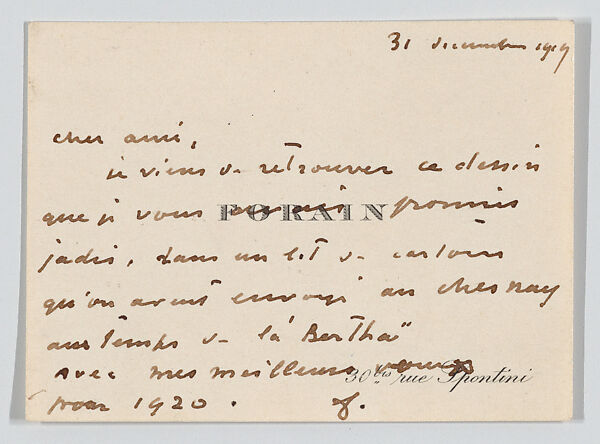 31 decembre 1919
cher ami,
je viens de retrouver ce dessin
que je vous avais promis
FORAIN
jadis, dans un lot de cartons
qu'on avait envoyé au chesnay
au temps de la "Bertha"
avec mes meilleurs voeux
30bis rue Spontini
pour 1920. f.